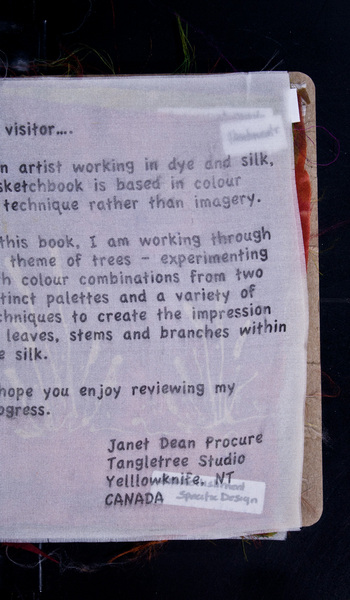 visitor....
n artist working in dye and silk,
sketchbook is based in colour
technique rather than imagery.
this book, I am working through
theme of trees – experimenting
h colour combinations from two
tinct palettes and a variety of
chniques to create the impression
leaves, stems and branches within
e silk.
hope you enjoy reviewing my
ogress.
Janet Dean Procure
Tangletree Studio
Yelllowknife, NT
CANADA
Specific Design